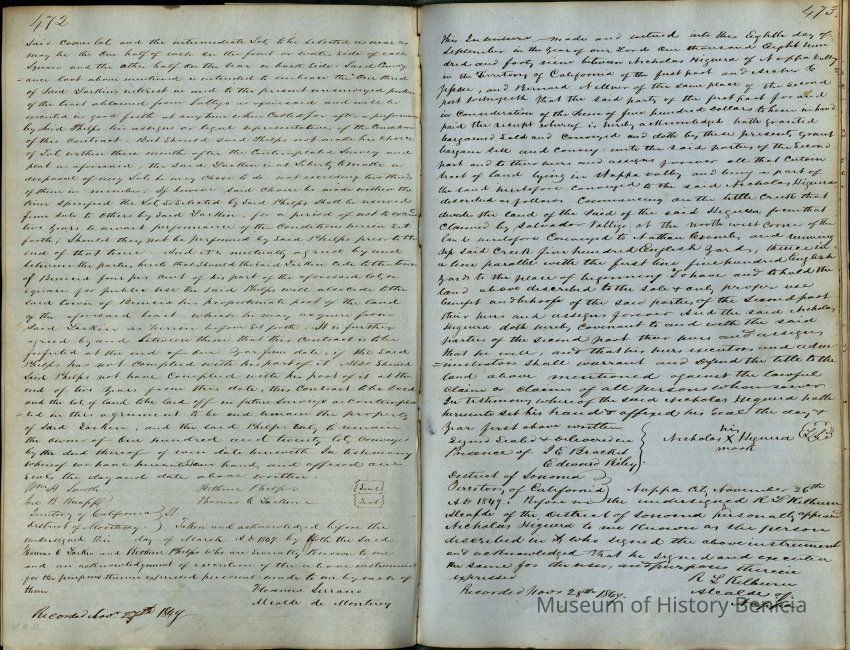 472
Said Corner lot and the intermediate Lots to be selected as near as
may be the One half of each on the front or water side of each
Square and the other half on the Rear or back side. Said Convey
ance last above mentioned is intended to embrace the One third
of Said Larkin's interest in and to the present unsurveyed portion
of the tract obtained from Vallejo as aforesaid and will be
executed in good faith at any time when Called for after a performance
by Said Phelps his assigns or legal representatives of the Conditions
of this Contract. But Should Said Phelps not make his choice
of Lots within three months after the anticipated Survey
as aforesaid, the Said Larkin is at Liberty to make a
disposal of any Lots he may choose to do not exceeding two thirds
of them in number. If however Said Choice be made within the
time specified the Lots Selected by Said Phelps Shall be reserved
from sale to others by Said Larkin, for a period of not to exceed
two Years to await performance of the Conditions herein set
forth; Should they not be performed by Said Phelps prior to the
end of that time. And it is mutually agreed by and
between the parties hereto that Should the Said Larkin Cede to the town
of Benicia for per cent of his part of the aforesaid lots, or
squares for public use the Said Phelps will also Cede to the
said town of Benicia his proportionate part of the land
of the aforesaid tract which he may acquire from
Said Larkin as herein before set forth. It is further
agreed by and between them that this Contract is to be
forfeited at the end of One Year from date, if the Said
Phelps has not Complied with his part of it. And Should
Said Phelps not have Complied with his part of it at the
end of two Years this date, this Contract to be void
and the lots of land to be laid off in future Surveys as contempla
ted in this agreement to be and remain the property
of Said Larkin, and the said Phelps only to remain
the owner of One hundred and twenty lots conveyed
by the deed thereof of even date herewith. In testimony
whereof we have hereunto our hand, and affixed our
seal, the day and date above written.
Wm H. Smith Bethuel Phelps Seal
Thomas O. Larkin Seal
Territory of California
District of Monterey } SS. Taken and acknowledged before the
undersigned this day of March A.D 1849. by both the Said
Thomas O. Larkin and Bethuel Phelps who are generally Known to me
and an acknowledgment of execution of the above instrument
for the purposes therein expressed personal made to me by each of
them
Florencio Serrano
Alcalde de Monterey
Recorded Nov. 27th 1849
473.
This Indenture made and entered into this Eighth day of
September in the Year of our Lord One thousand Eight hun
dred and forty nine between Nicholas Higuera of Nappa Valley
in the Territory of California of the first part and
and Bernard of the same place of the Second
part Witnesseth that the said party of the first part for and
in Consideration of the Sum of five hundred dollars to him in hand
paid the receipt whereof is hereby acknowledged hath granted
bargained Sold and Conveyed and doth by these presents grant
bargain sell and Convey unto the said parties of the Second
part and to their heirs and assigns forever all that Certain
tract of land lying in Nappa valley and being a part of
the land heretofore conveyed to the said Nicholas Higuera
described as follows Commencing on the little Creek that
divides the land of the said of the said Higuera from that
claimed by Salvador Vallejo at the north west corner of the
land heretofore Conveyed to Nathan Coombs, and running
up said Creek five hundred English Yards, thence in
a line parallel with the first line five hundred English
Yards to the place of beginning To have and to hold the
land above described to the sole & only proper use
benefit and behoofe of the said parties of the Second part
their heirs and assigns forever And the said Nicholas
Higuera doth hereby Covenant to and with the said
parties of the second part their heirs and assigns
that he will, and that his heirs executors and adm-
inistrators shall warrant and defend the title to the
land above mentioned against the lawful
claim or claims of all persons whomsoever
In testimony whereof the said Nicholas Higuera hath
hereunto set his hand & affixed his seal the day &
Year first above written
Signed Sealed & Delivered in
Presence of J. E. Bracket
Edward Riley
Nicholas X Higuera
his
mark
District of Sonoma
Territory of California } Nappa City November 26th
A.D 1849. Before me the undersigned R L Kilburn
Alcalde of the District of Sonoma personally appeared
Nicholas Higuera to me Known as the person
described in & who signed the above instrument
and acknowledged that he signed and executed
the same for the uses, and purposes therein
expressed
R L Kilburn
Alcalde of
Recorded Nov. 28th 1849.
Museum of History Benicia